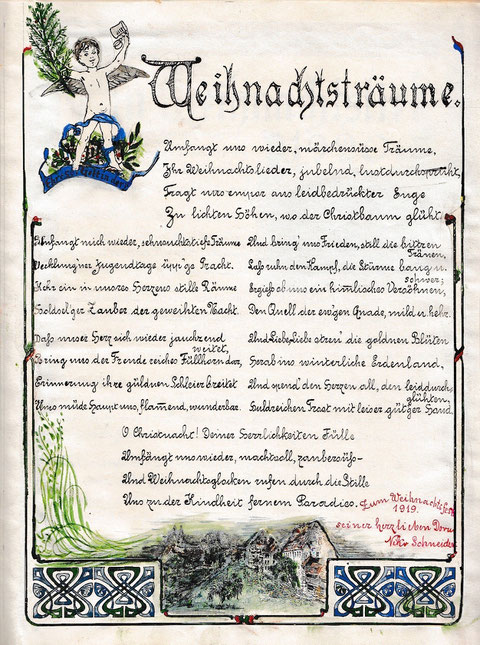 Weihnachtsträume.
Ehre sei Gott in der
Umfangt uns wieder, märchensüsse Träume,
Ihr Weihnachtslieder, jubelnd, lustdurchsprüht,
Tragt uns empor aus leidbedrückter Enge
Zu lichten Höhen, wo der Christbaum glüht.
Umfangt mich wieder, sehnsuchtstiefe Träume
Verklung'ner Jugendtage üpp'ge Pracht.
Kehr ein in unsres Herzens stille Räume
Holdsel'ger Zauber der geweihten Nacht.
Daß unser Herz sich wieder jauchzend
weitet,
Bring uns der Freude reiches Füllhorn dar,
Erinnerung ihre güldnen Schleier breitet
Ums müde Haupt uns, flammend, wunderbar.
Und bring' uns Frieden, still die bittren
Tränen,
Laß ruhn den Kampf, die Stürme bang u.
schwer;
Ergieß ob uns ein himlisches Versöhnen,
Den Quell der ew'gen Gnade, mild u. hehr.
Und Liebe, Liebe streu' die goldnen Blüten
Herab ins winterliche Erdenland,
Und spend' den Herzen all, den leiddurch-
glühten,
Huldreichen Trost mit leiser güt'ger Hand.
O Christnacht! Deiner Herrlichkeiten Fülle
Umfängt uns wieder, machtvoll, zaubersüß-
Und Weihnachtsglocken rufen durch die Stille
Uns zu der Kindheit fernem Paradies.
Zum Weihnachtsfeste
1919.
seiner herzlieben Dora
Nik. Schneider